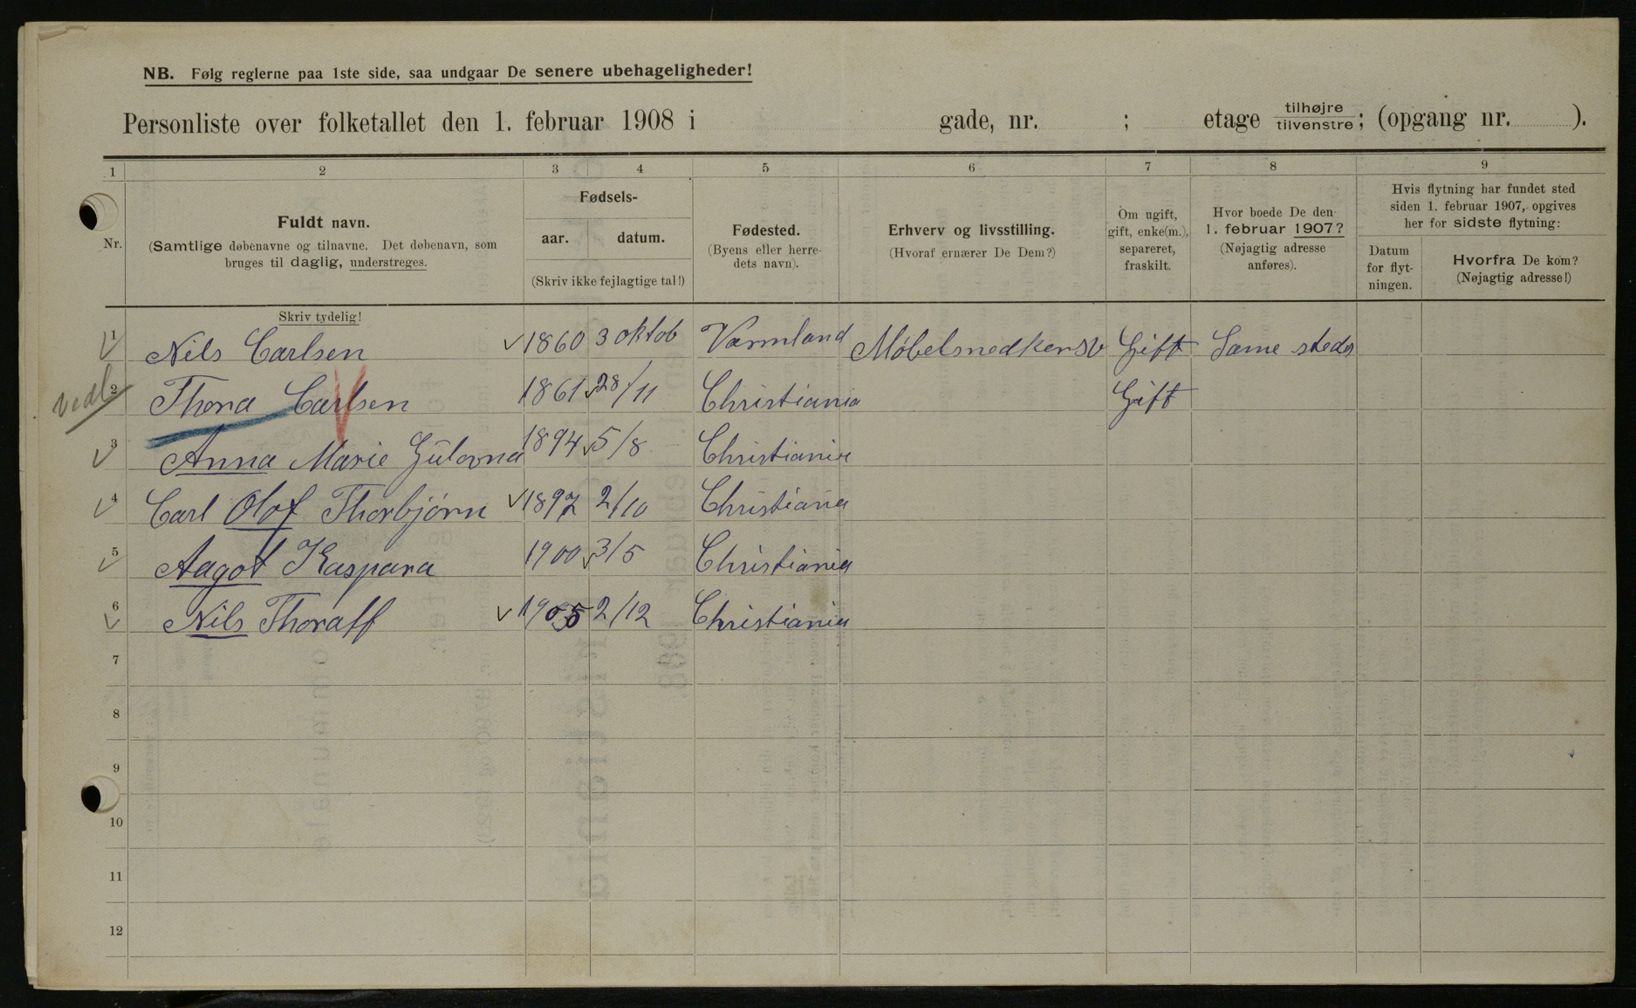 NB. Følg reglerne paa 1ste side, saa undgaar De senere ubehageligheder!
Personliste over folketallet den 1. februar 1908 i gade, nr. ; etage tilhøjre tilvenstre; (opgang nr. ).
1 2 3 4 5 6 7 8 9
Nr.
Fuldt navn.
(Samtlige døbenavne og tilnavne. Det døbenavn, som
bruges til daglig, understreges.
Fødsels-
aar. datum.
(Skriv ikke fejlagtige tal!)
Fødested.
(Byens eller herre-
dets navn).
Erhverv og livsstilling.
(Hvoraf ernærer De Dem?)
Om ugift,
gift, enke(m.),
separeret,
fraskilt.
Hvor boede De den
1. februar 1907?
(Nøjagtig adresse
anføres).
Hvis flytning har fundet sted
siden 1. februar 1907, opgives
her for sidste flytning:
Datum
for flyt-
ningen.
Hvorfra De kom?
(Nøjagtig adresse!)
Skriv tydelig!
1 Nils Carlsen 1860 3 oktob Varmland Møbelsnedkersv Gift Same steds
2 Thora Carlsen 1861 28/11 Christiania Gift
3 Anna Marie Gulovna 1894 5/8 Christiania
4 Carl Olof Thorbjörn 1897 2/10 Christiania
5 Aagot Kaspara 1900 3/5 Christiania
6 Nils Thoralf 1905 2/12 Christiania
7
8
9
10
11
12